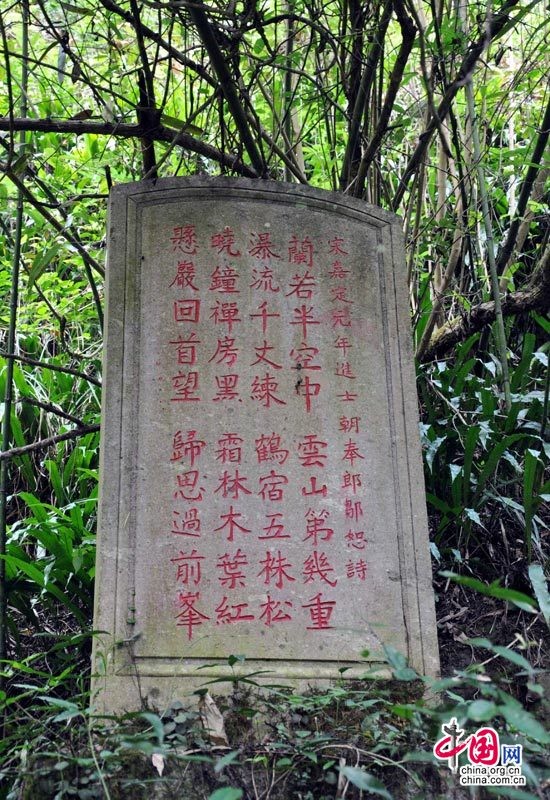 宋嘉定元年進士朝奉郎鄒恕詩
蘭若半空中 雲山第幾重
瀑流千丈練 鶴宿五株松
曉鐘禪房黑 霜林木葉紅
懸巖回首望 歸思過前峯
中国网
china.org.cn
china.com.cn